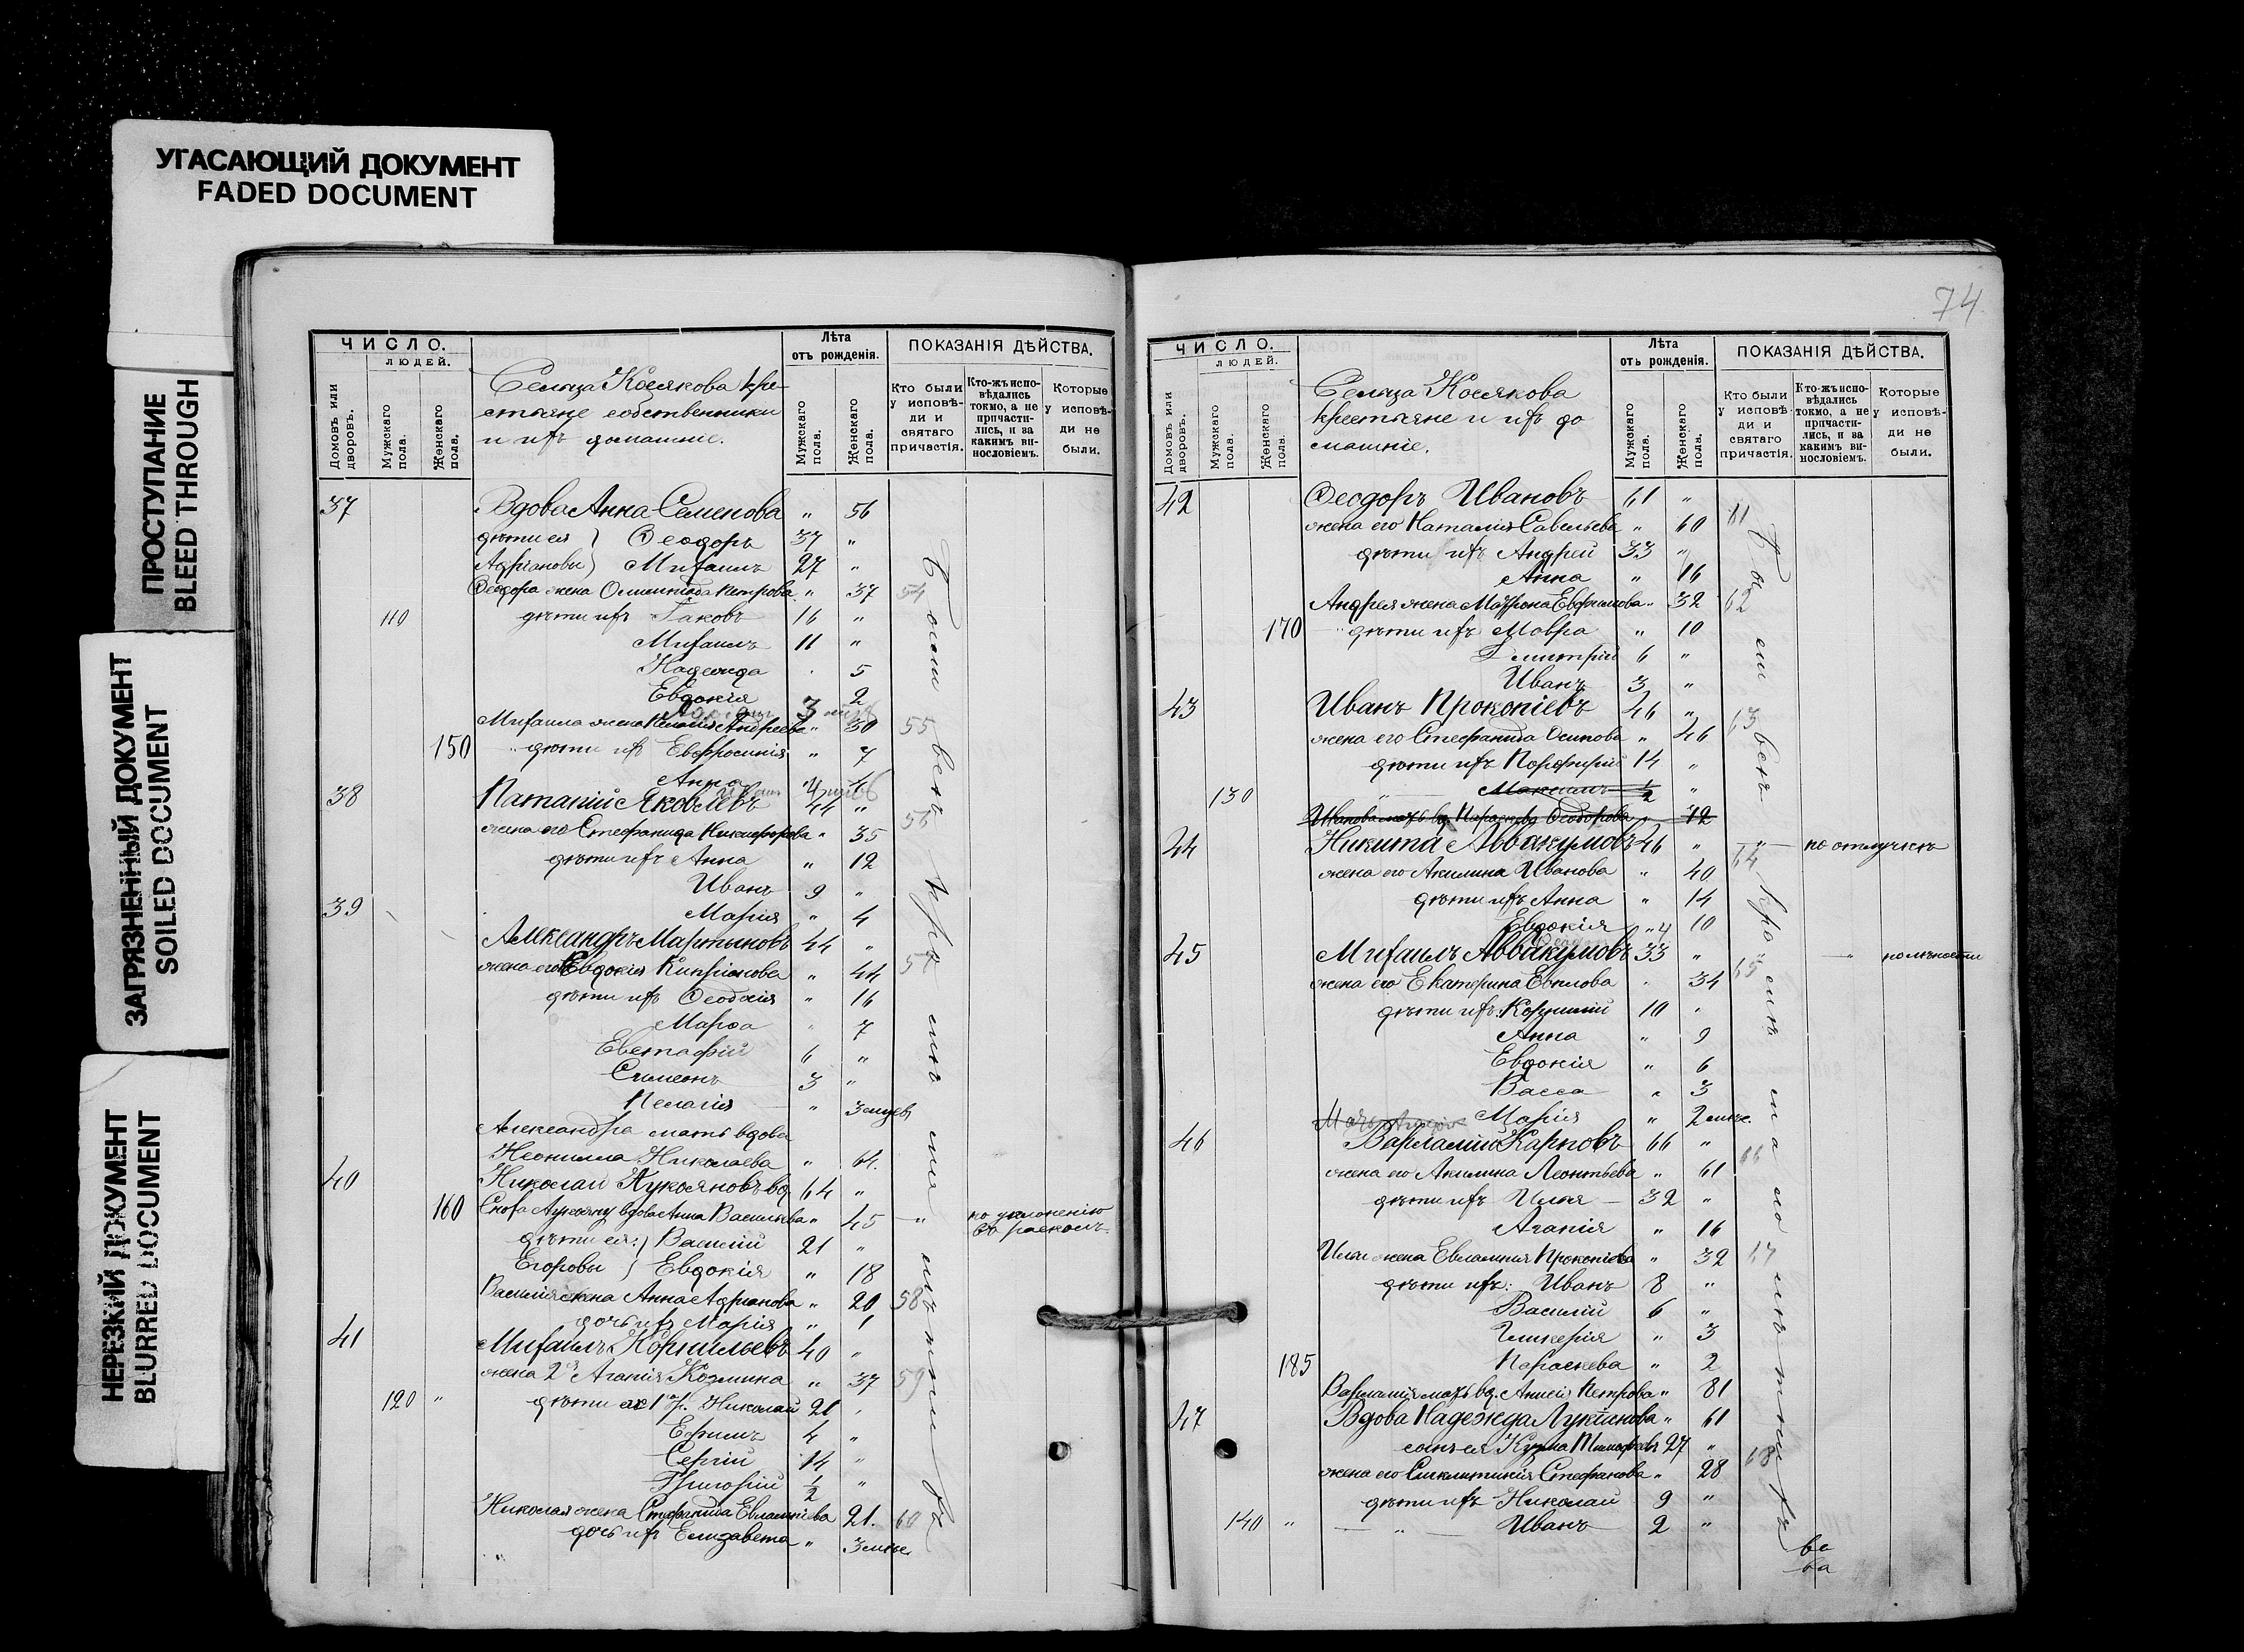 УГАСАЮЩИЙ ДОКУМЕНТ
FADED DOCUMENT
ПРОСТУПАНИЕ
BLEED THROUGH
ЗАГРЯЗНЕННЫЙ ДОКУМЕНТ
SOILED DOCUMENT
НЕРЕЗКИЙ ДОКУМЕНТ
BLURRED DOCUMENT
ЧИСЛО.
ЛЮДЕЙ.
Домовъ или дворовъ.
Мужскаго пола.
Женскаго пола.
Сельца Косякова кре-
стьяне собственники
и ихъ домашніе.
Лѣта
отъ рожденія.
Мужскаго пола.
Женскаго пола.
ПОКАЗАНІЯ ДѢЙСТВА.
Кто были у исповѣди и святаго причастія.
Кто-жъ исповѣдались токмо, а не причастились, и за какимъ винословіемъ.
Которые у исповѣди не были.
37 Вдова Анна Семенова " 56
дѣти ея } Ѳеодоръ 37 "
Адріановы } Михаилъ 27 "
Ѳеодора жена Петрова " 37 54
110 дѣти ихъ Іаковъ 16 "
Михаилъ 11 "
Надежда 5
Евдокія 2
3
Михаила жена Пелагія Андреева " 30 55
150 " дѣти ихъ Евфросинія " 7
Анна 4
38 Патапій Яковлевъ 44 "
жена его Стефанида Никифорова " 35 56
дѣти ихъ Анна " 12
Иванъ 9 "
39 Марія " 4
Александръ Мартыновъ 44 "
жена его Евдокія Кипріанова " 44 57
дѣти ихъ Ѳеодосія " 16
Марѳа " 7
Евстафій 6 "
Симеонъ 3 "
Пелагія " 3 мѣсяц.
Александра мать вдова
Неонилла Николаева " 64.
40 Николай Лукояновъ вд. 64 "
160 Сноха вдова Анна Васильева " 45 — " по уклоненію
въ расколъ.
дѣти ея: } Василій 21 "
Егоровы } Евдокія " 18
Василія жена Анна Адріанова " 20 58
дочь ихъ Марія " 1
41 Михаилъ Корнильевъ 40 "
жена 2я Агапія Козмина " 37 59
120 " дѣти 1 бр. Николай 21 "
Ефимъ 4 "
Сергій 14 "
Григорій ½ "
Николая жена Стефанида Евлампіева 21. 60
дочь ихъ Елизавета " 3 мѣс.
Состоитъ
74
ЧИСЛО.
ЛЮДЕЙ.
Домовъ или дворовъ.
Мужскаго пола.
Женскаго пола.
Сельца Косякова
крестьяне и ихъ до
машніе.
Лѣта
отъ рожденія.
Мужскаго пола.
Женскаго пола.
ПОКАЗАНІЯ ДѢЙСТВА.
Кто были у исповѣди и святаго причастія.
Кто-жъ исповѣдались токмо, а не причастились, и за какимъ винословіемъ.
Которые у исповѣди не были.
42 Ѳеодоръ Ивановъ 61 "
жена его Наталія Савельева " 60 61
дѣти ихъ Андрей 33 "
Анна " 16
Андрея жена Матрона Ефимова " 32 62
170 дѣти ихъ Мавра " 10
Димитрій 6 "
Иванъ 3 "
43 Иванъ Прокопіевъ 46 "
жена его Стефанида Осипова " 46 63
дѣти ихъ Порфирій 14 "
130 Максимъ ½ "
Иванова мать вд. Параскева Ѳеодорова " 72
44 Никита Аввакумовъ 46 " — " — по отлучкѣ
жена его Акилина Иванова " 40 64
дѣти ихъ Анна " 14
Евдокія " 10
45 Михаилъ Аввакумовъ 33 " " по лѣности
жена его Екатерина Евпилова " 34 65
дѣти ихъ: Корнилій 10 "
Анна " 9
Евдокія " 6
Васса " 3
Марія " 2 мѣс.
46 Варлаамій Карповъ 66 "
жена его Акилина Леонтьева " 61 66
дѣти ихъ Илія 32 "
Агапія " 16
Иліи жена Евлампія Прокопіева " 32 67
дѣти ихъ: Иванъ 8 "
Василій 6 "
Гликерія " 3
185 Параскева " 2
Варлаамія мать вд. Анисія Петрова " 81
47 Вдова Надежда Лукіанова " 61
сынъ ея Козма Тимофеевъ 27 "
жена его Синклитикія Стефанова " 28 68
дѣти ихъ Николай 9 "
140 " — " — Иванъ 2 "